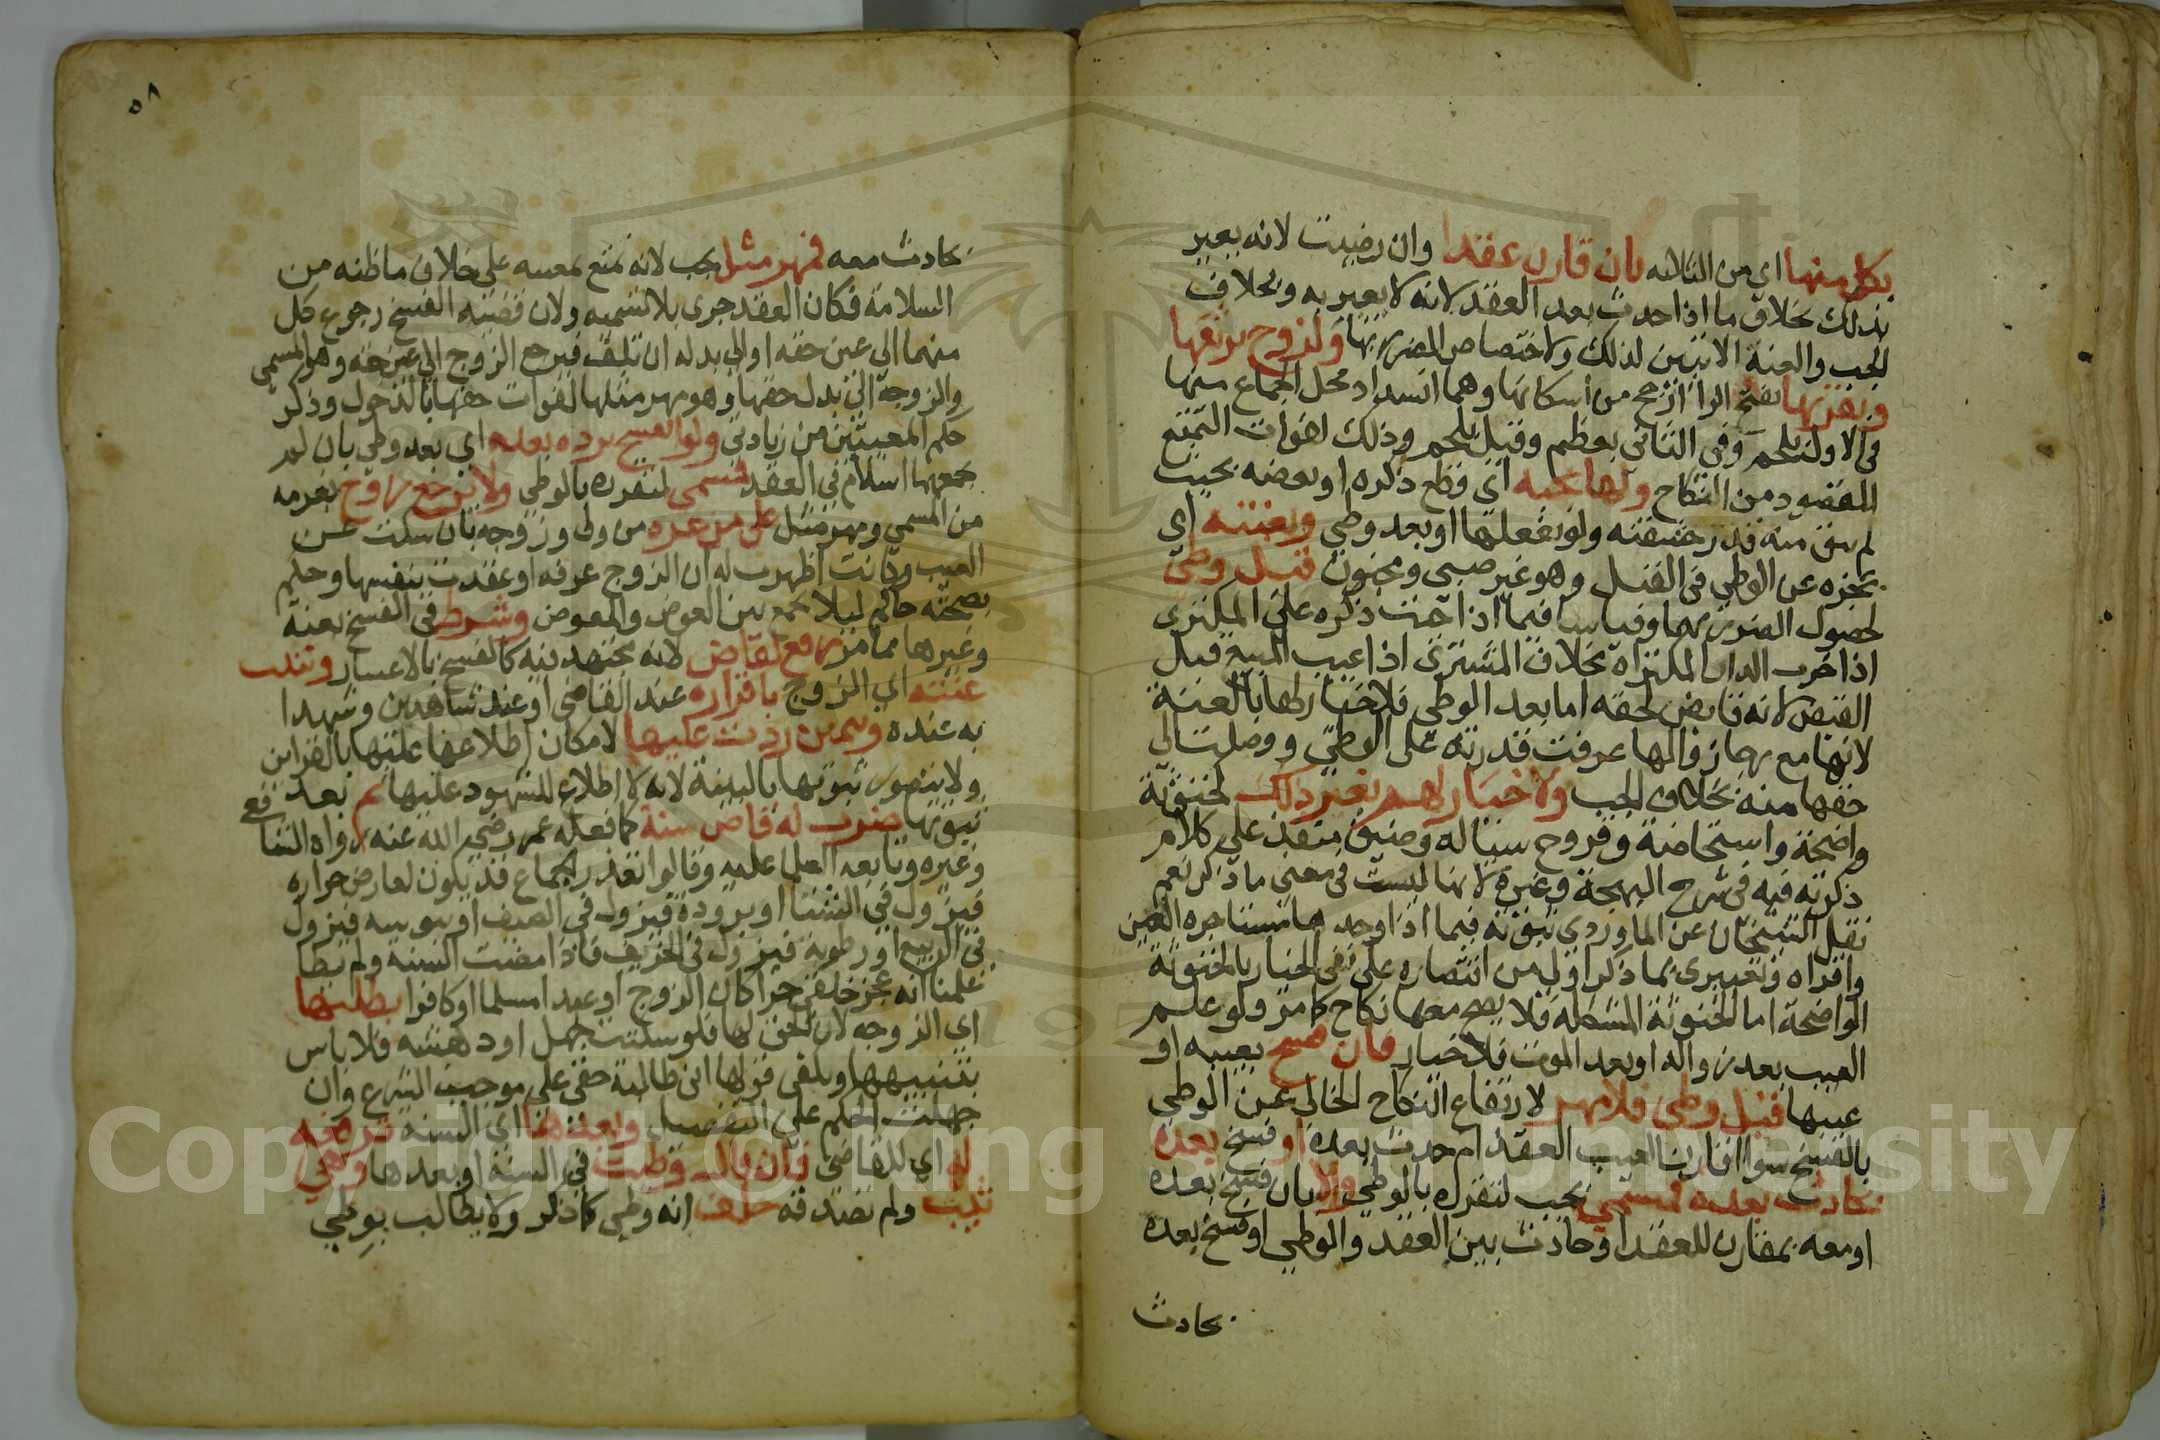 بكل منها اي من الثلاثه بان قارن عقدا وان رضيت لانه يعير
بذلك بخلاف ما اذا حدث بعد العقد لانه لا يعير به وبخلاف
الجب والعنة الاتيين لذلك ولاختصاص الضرر بها ولزوج برتقها
وبقرنها بفتح الراء ارجح من اسكانها وهما انسداد محل الجماع منها
في الاول بلحم وفي الثاني بعظم وقيل بلحم وذلك لفوات التمتع
المقصود من النكاح ولها بجبه اي قطع ذكره او بعضه بحيث
لم يبق منه قدر حشفته ولو بفعلها او بعد وطي وبعنته اي
عجزه عن الوطي في القبل وهو غير صبي ومجنون قبل وطي
لحصول الضرر بهما وقياسا فيما اذا جبت ذكره على المكتري
اذا خرب الدار المكتراه بخلاف المشتري اذا عيب المبيع قبل
القبض لانه قابض لحقه اما بعد الوطي فلا خيار لها بالعنة
لانها مع رجا زوالها عرفت قدرته على الوطي ووصلت الى
حقها منه بخلاف الجب ولا خيار لهم بغير ذلك كخنوثة
واضحة واستحاضة وقروح سيالة وضيق منفذ على كلام
ذكرته فيه في شرح البهجة وغيره لانها ليست في معنى ما ذكر نعم
نقل الشيخان عن الماوردي ثبوته فيما اذا وجدها مستاجرة العين
واقراه وتعبيري بما ذكر اولى من اقتصاره على نفي الخيار بالخنوثة
الواضحة اما الخنوثة المشكلة فلا يصح معها نكاح كما مر ولو علم
العيب بعد زواله او بعد الموت فلا خيار فان فسخ بعيبه او
عيبها قبل وطي فلا مهر لارتفاع النكاح الخالي عن الوطي
بالفسخ سوا اقارن العيب العقد ام حدث بعده او فسخ بعده
بحادث بعده فمسمى يجب لتقرره بالوطي والا بان فسخ بعده
او معه بمقارن للعقد او حادث بين العقد والوطي او فسخ بعده
بحادث
٥٨
بحادث معه فمهر مثل يجب لانه تمتع بمعيبه على خلاف ما ظنه من
السلامة فكان العقد جرى بلا تسميه ولان قضية الفسخ رجوع كل
منهما الى عين حقه او الى بدله ان تلف فيرجع الزوج الى عين حقه وهو المسمى
والزوجة الى بدل حقها وهو مهر مثلها لفوات حقها بالدخول وذكر
حكم المعيتين من زيادتي ولو انفسخ برده بعده اي بعد وطي بان لم
يجمعهما اسلام في العقد فمسمى لتقرره بالوطي ولا يرجع زوج بغرمه
من المسمى ومهر مثل على من غره من ولي وزوجه بان سكت عن
العيب وكانت اظهرت له ان الزوج عرفه او عقدت بنفسها وحكم
بصحته حاكم ليلا يجمع بين العوض والمعوض وشرط في الفسخ بعنة
وغيرها مما مر رفع لقاض لانه مجتهد فيه كالفسخ بالاعسار وتثبت
عنته اي الزوج باقراره عند القاضي او عند شاهدين وشهدا
به عنده وبيمين ردت عليها لامكان اطلاعها عليها بالقراين
ولا يتصور ثبوتها بالبينة لانه لا اطلاع للشهود عليها ثم بعد
ثبوتها ضرب له قاض سنة كما فعله عمر رضي الله عنه رواه الشافعي
وغيره وتابعه العلما عليه وقالوا تعذر الجماع قد يكون لعارض حراره
فيزول في الشتا او برودة فيزول في الصيف او يبوسه فيزول
في الربيع او رطوبة فيزول في الخريف فاذا مضت السنه ولم يطا
علمنا انه عجز خلقي حرا كان الزوج او عبدا مسلما او كافرا بطلبها
اي الزوجه لان الحق لها فلو سكتت لجهل او دهشه فلا باس
بتنبيهها ويكفي قولها اني طالبة حقي على موجب الشرع وان
جهلت الحكم على التفصيل وبعدها اي السنه ترفعه
له اي للقاضي فان قال وطئت في السنة او بعدها وهي
ثيب ولم تصدقه حلف انه وطي كما ذكر ولا يطالب بوطي